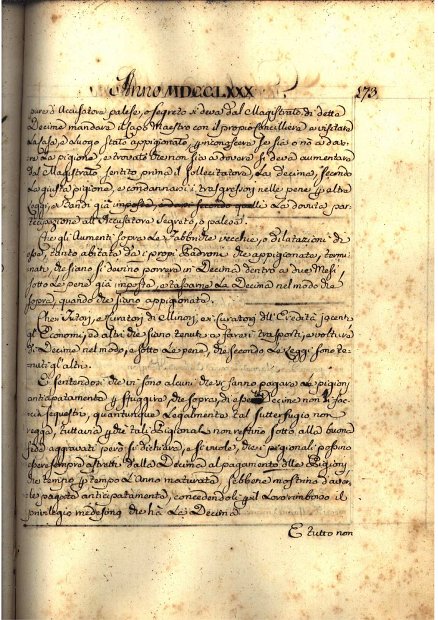 Anno MDCCLXXX 173
pure ò Accusatore palese, o segreto si deva dal Magistrato di detta
Decime mandare il capo Maestro con il proprio Cancelliere a visitare
la casa, e luogo stato appigionato, p̱ riconoscere se sia o nò a dov.
re la pigione, e trovata che non sia a dovere si deva aumentare
dal Magistrato sentito prima il sollecitatore, la Decima, secondo
la giusta pigione, e condannati i trasgressori nelle pene p̱ altre
leggi, e Bandi già imposte, la dovuta par
tecipazione all'Accusatore segreto, o palese.
Che gli Aumenti sopra le fabbriche vecchie, o dilatazioni di
esse, tanto abitate da i propri Padroni che appigionate, termi
nate, che siano si devino porre in Decima dentro a due Mesi
sotto le pene già imposte, e tassarne la Decima nel modo che
sopra, quando che siano appigionate.
Che i Tutori, e Curatori di Minori, e i Curatori dell'Eredità jacenti
gl'Economi, ed altri che siano tenuti a fare i trasporti, e volture
di Decime nel modo, e sotto le pene, che secondo le Leggi sono te
nuti gl'altri.
E sentendosi che vi sono alcuni che si fanno pagare le pigioni
anticipatamente p̱ sfuggire che sopra di esse Decime non si fac
cia sequestri, quantunque legalmente tal sutterfugio non
vegga, tuttavia p̱ che tali Pigionali non restino sotto alla buona
fede aggravati però si dichiara, e si vuole, che i pigionali possino
essere sempre astretti dalla Decima al pagamento delle Pigioni
che tempo p̱ tempo l'Anno maturata, sebbene mostrino d'aver
le pagate anticipatamente, concedendoli p̱ il loro rimborso il
privilegio medesimo che hà la Decima
E tutto non